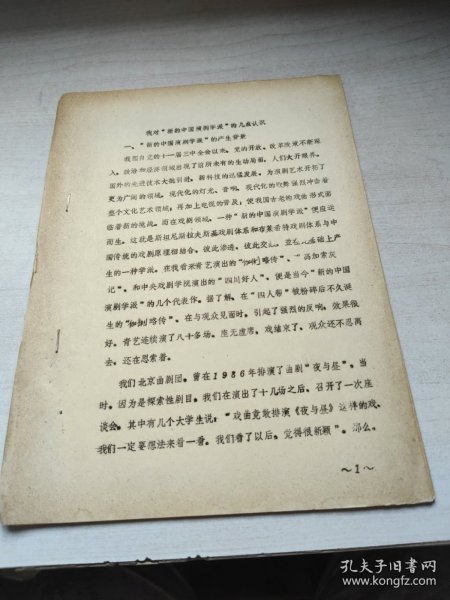 我对“新的中国演剧学派”的几点认识
一、“新的中国演剧学派”的产生背景
我国自党的十一届三中全会以来，党的开放、改革政策不断深
入，政治和经济领域出现了前所未有的生动局面，人们大开眼界。
国外的先进技术大批引进，新科技的迅猛发展，为演剧艺术开拓了
更为广阔的领域，现代化的灯光、音响，现代化的服饰强烈冲击着
整个文化艺术领域；再加上电视的普及；使我国古老的戏曲形式面
临着新的挑战。而在戏剧领域，一种“新的中国演剧学派”便应运
而生。这就是斯坦尼斯拉夫斯基戏剧体系和布莱希特戏剧体系与中
国传统的戏剧原理相结合，彼此渗透，彼此交，并在基础上产
生的一种学派。在我看来青艺演出的“伽利略传”、“高加索灰
记”、和中央戏剧学院演出的“四川好人”、便是当今“新的中国
演剧学派”的几个代表作。据了解，在“四人帮”被粉碎后不久诞
生的“伽利略传”，在与观众见面时，引起了强烈的反响，效果很
好。青艺连续演了八十多场，座无虚席，戏结束了，观众还不忍离
去，还在思索着。
我们北京曲剧团，曾在1986年排演了曲剧“夜与昼”，当
时，因为是探索性剧目。我们在演出了十几场之后，召开了一次座
谈会。其中有几个大学生说：“戏曲竟敢排演《夜与昼》这样的戏，
我们一定要想法来看一看。我们看了以后，觉得很新颖”。那么，
～1～
孔夫子旧书网
www.kongfz.com